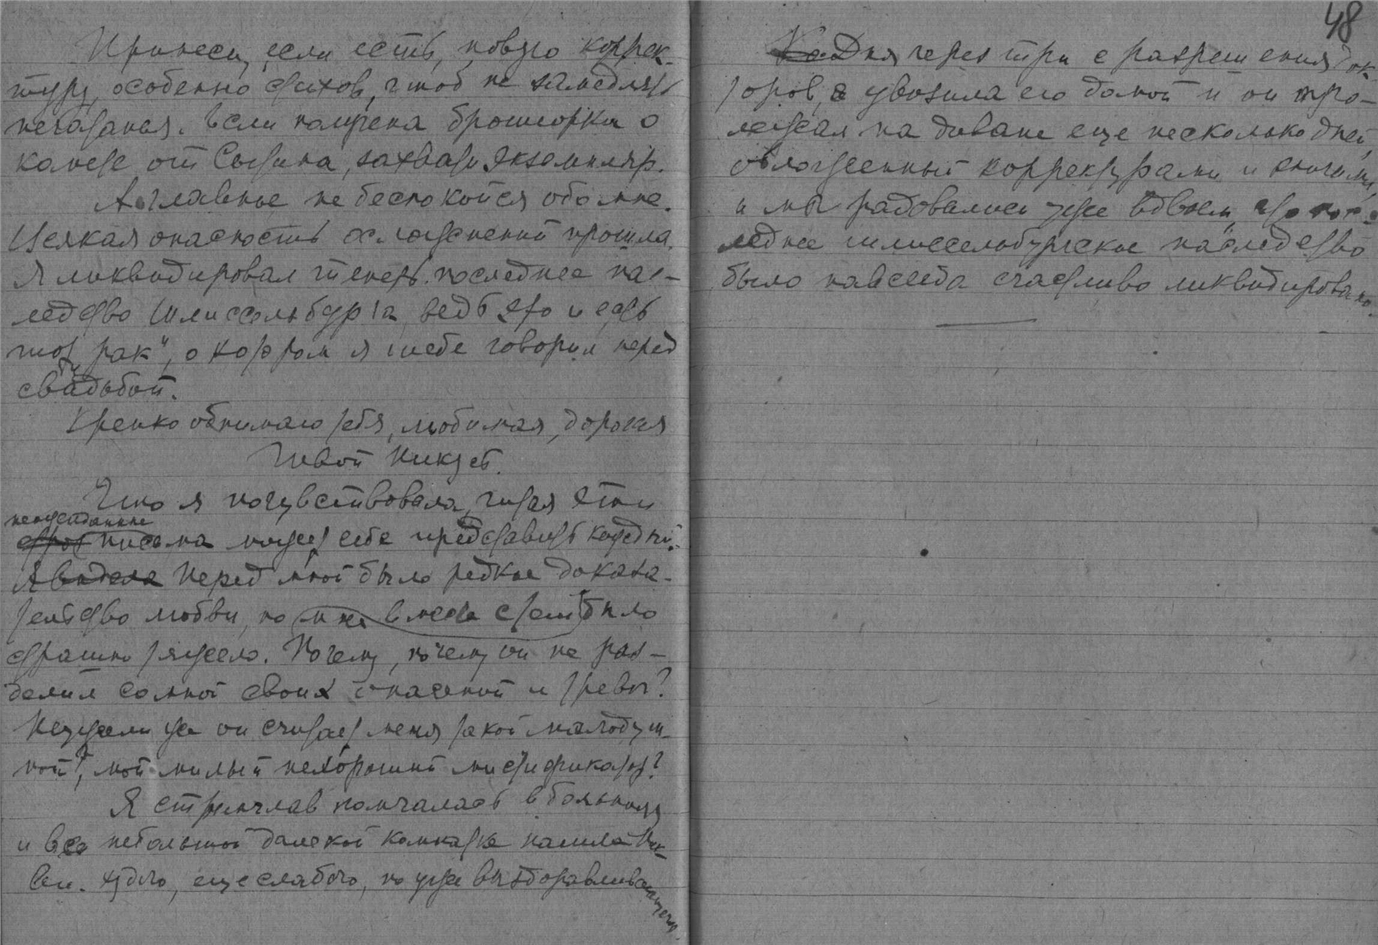 Принеси, если есть, новую коррек-
туру, особенно стихов, чтоб не замедлять
печатанья. Если получена брошюрка о
комете от Сытина, захвати экземпляр.
А главное не беспокойся обо мне.
Всякая опасность осложнений прошла.
Я ликвидировал теперь последнее нас-
ледство Шлиссельбурга, ведь это и есть
тот „рак", о котором я тебе говорил перед
свадьбой.
Крепко обнимаю тебя, любимая, дорогая
Твой Никтей.
Что я почувствовала, читая эти
неожиданные
письма может себе представить каждый.
Я видела Перед мной было редкое доказа-
тельство любви, но мне вместе с тем было
страшно тяжело. Почему, почему он не раз-
делил со мной своих опасений и тревог?
Неужели же он считает меня такой малодуш-
ной?, мой милый нехороший мистификатор?
Я стремглав помчалась в больницу
и в небольшой дамской комнатке нашла Ник-
вси. худого, еще слабого, но уже выздоравливающего.
48
Дня через три с разрешения док-
торов, я увозила его домой и он про-
лежал на диване еще несколько дней,
обложенный корректурами и книгами,
и мы радовались уже вдвоем, что пос-
леднее шлиссельбургское наследство
было навсегда счастливо ликвидировано.